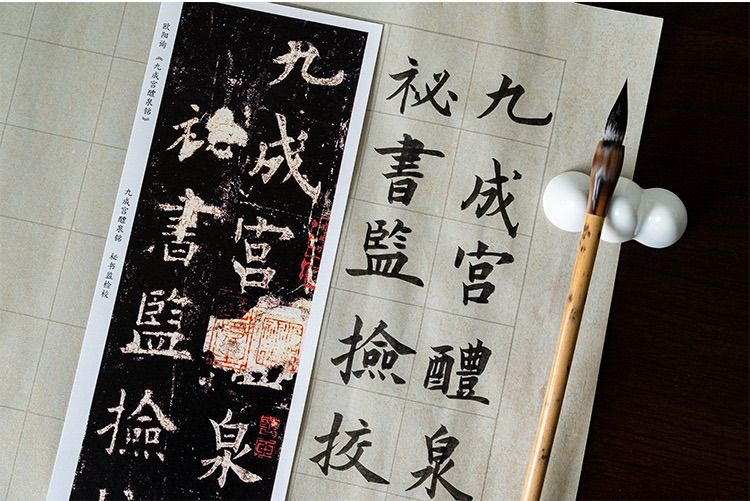 九成宮醴泉
祕書監撿挍
九成宮泉
祕書監撿
欧阳询《九成宫醴泉铭》
九成宫醴泉铭 秘书监检校